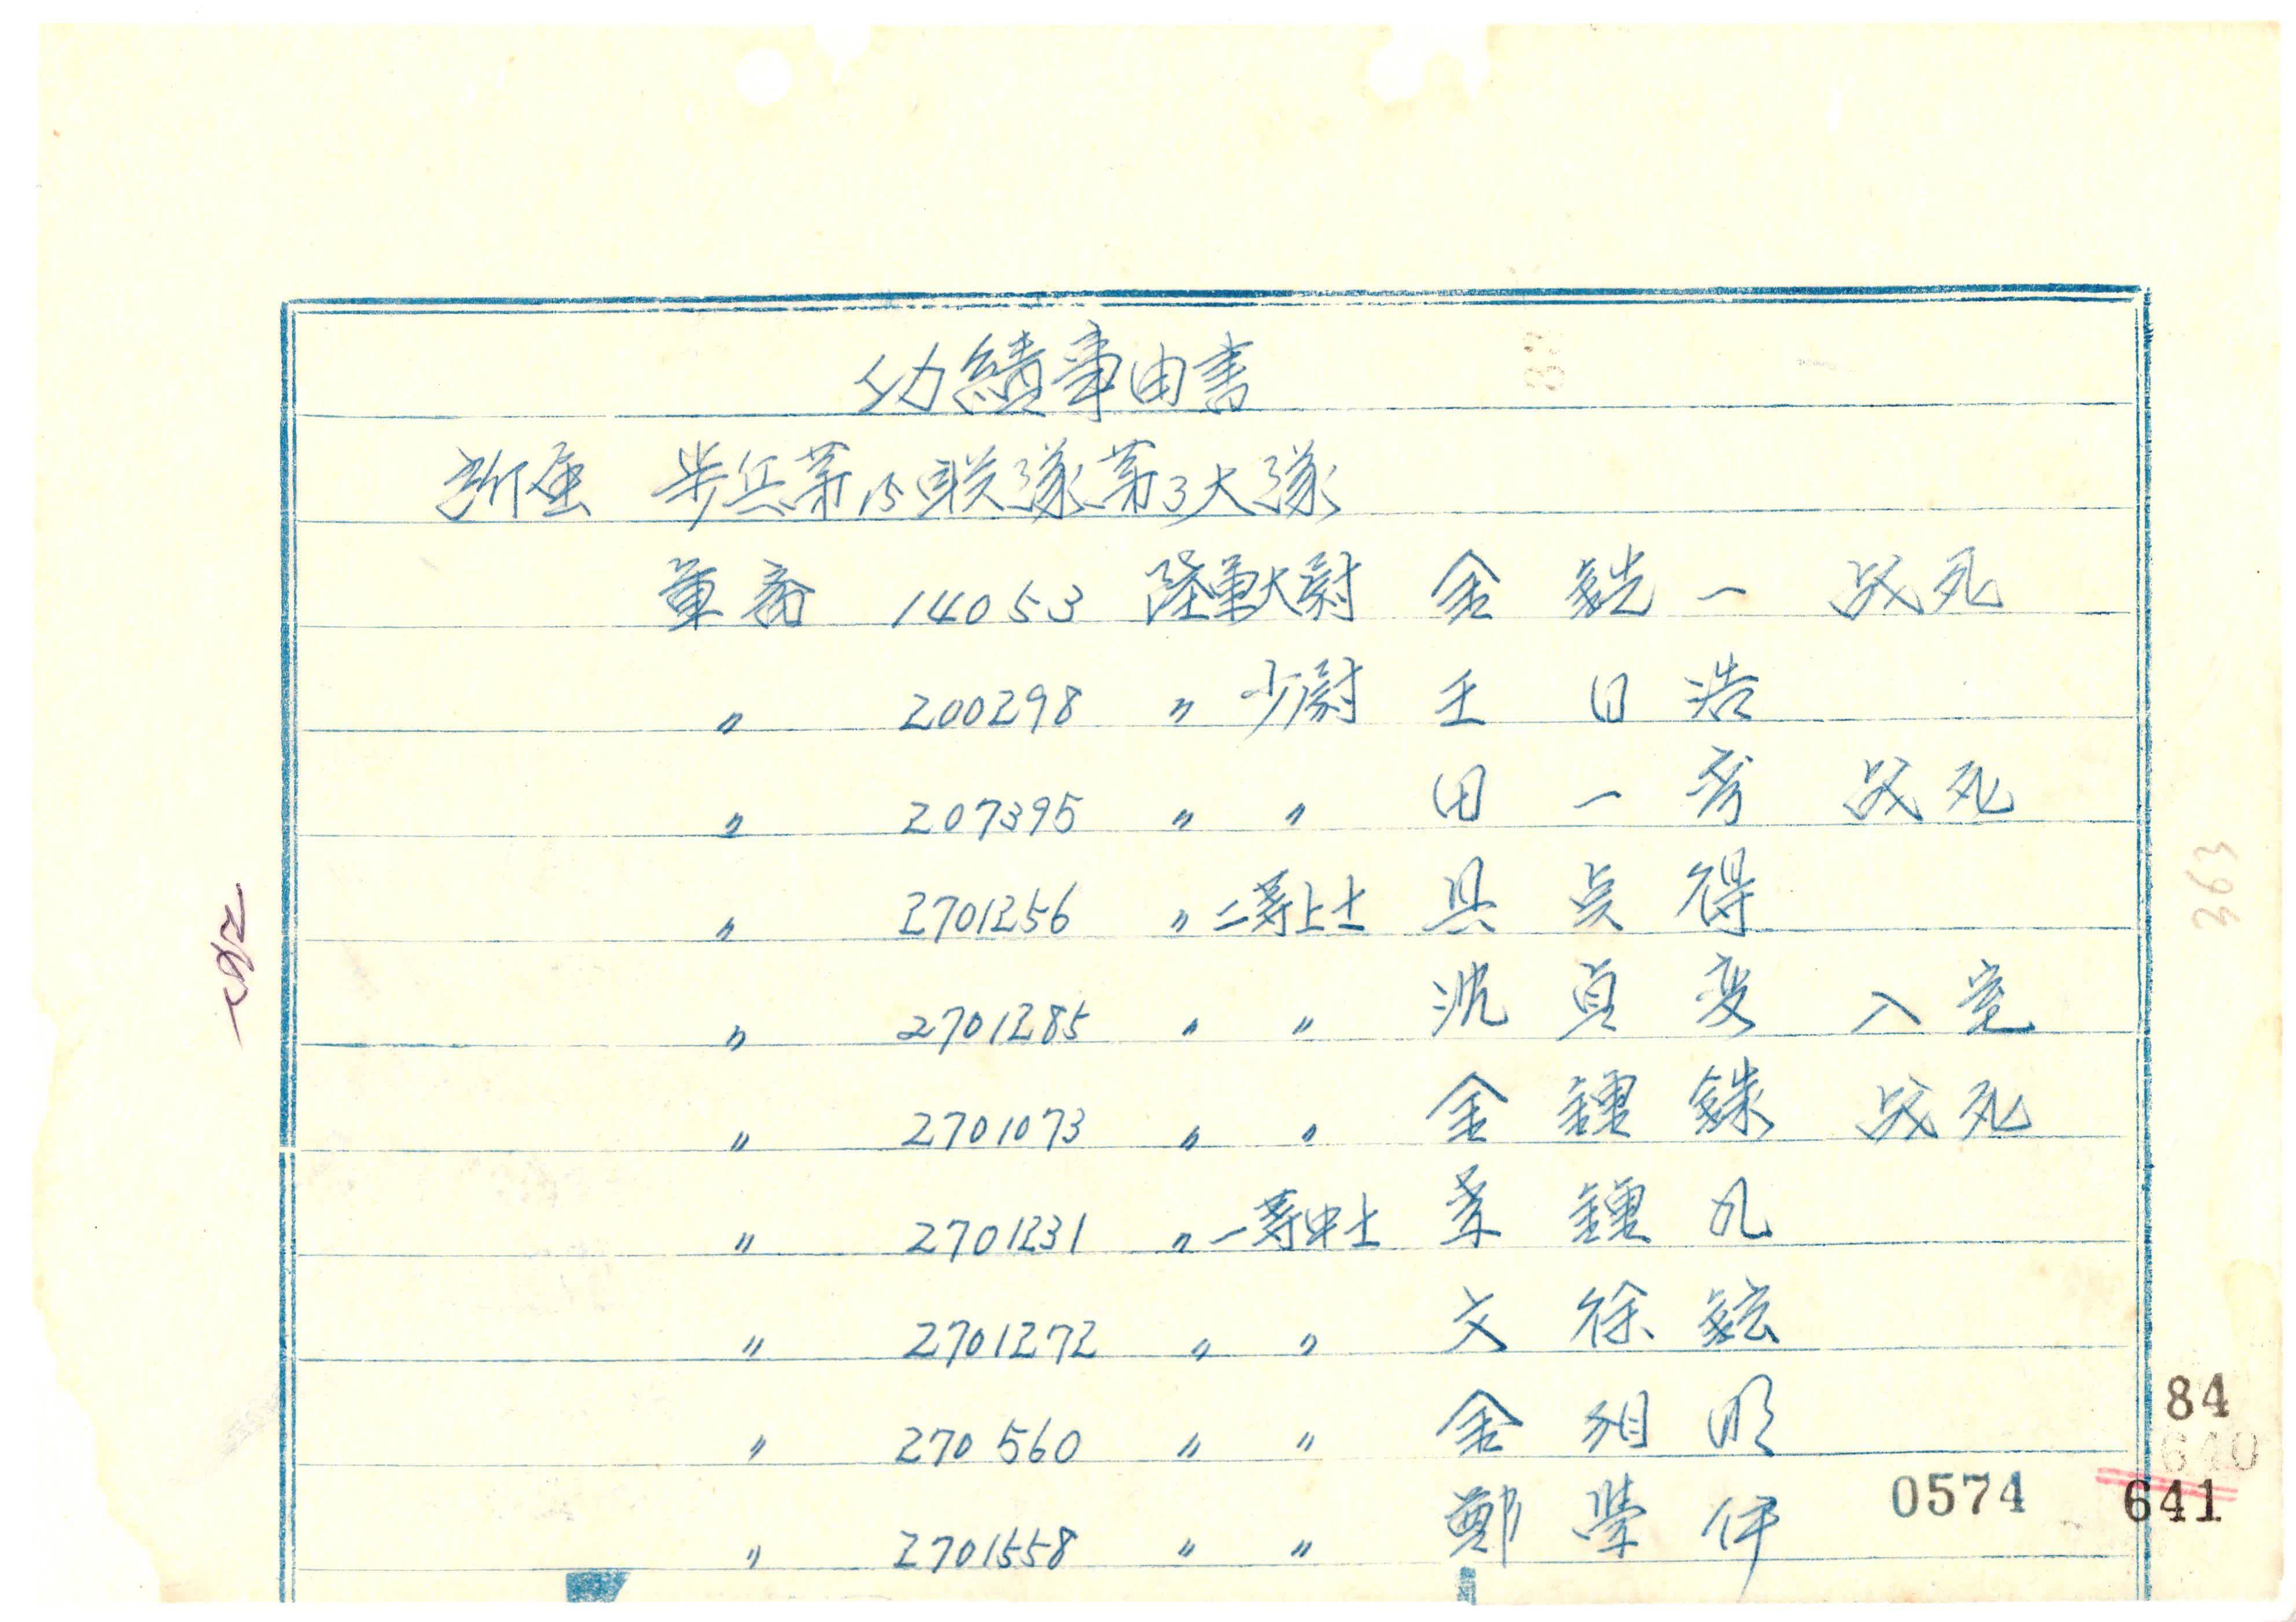 功績事由書
所属 歩兵第15联隊第3大隊
軍番 14053 陸軍大尉 金 銑 一 战死
〃 200298 〃 少尉 王 日 浩
〃 207395 〃 〃 田 一 秀 战死
〃 2701256 〃 二等上士 具 点 得
〃 2701285 〃 〃 沈 貞 变 入室
〃 2701073 〃 〃 金 鍾 銖 战死
〃 2701231 〃 一等中士 姜 鍾 九
〃 2701272 〃 〃 文 徐 鉉
〃 270560 〃 〃 金 相 明
〃 2701558 〃 〃 鄭 学 伊
363
84
640
0574 641